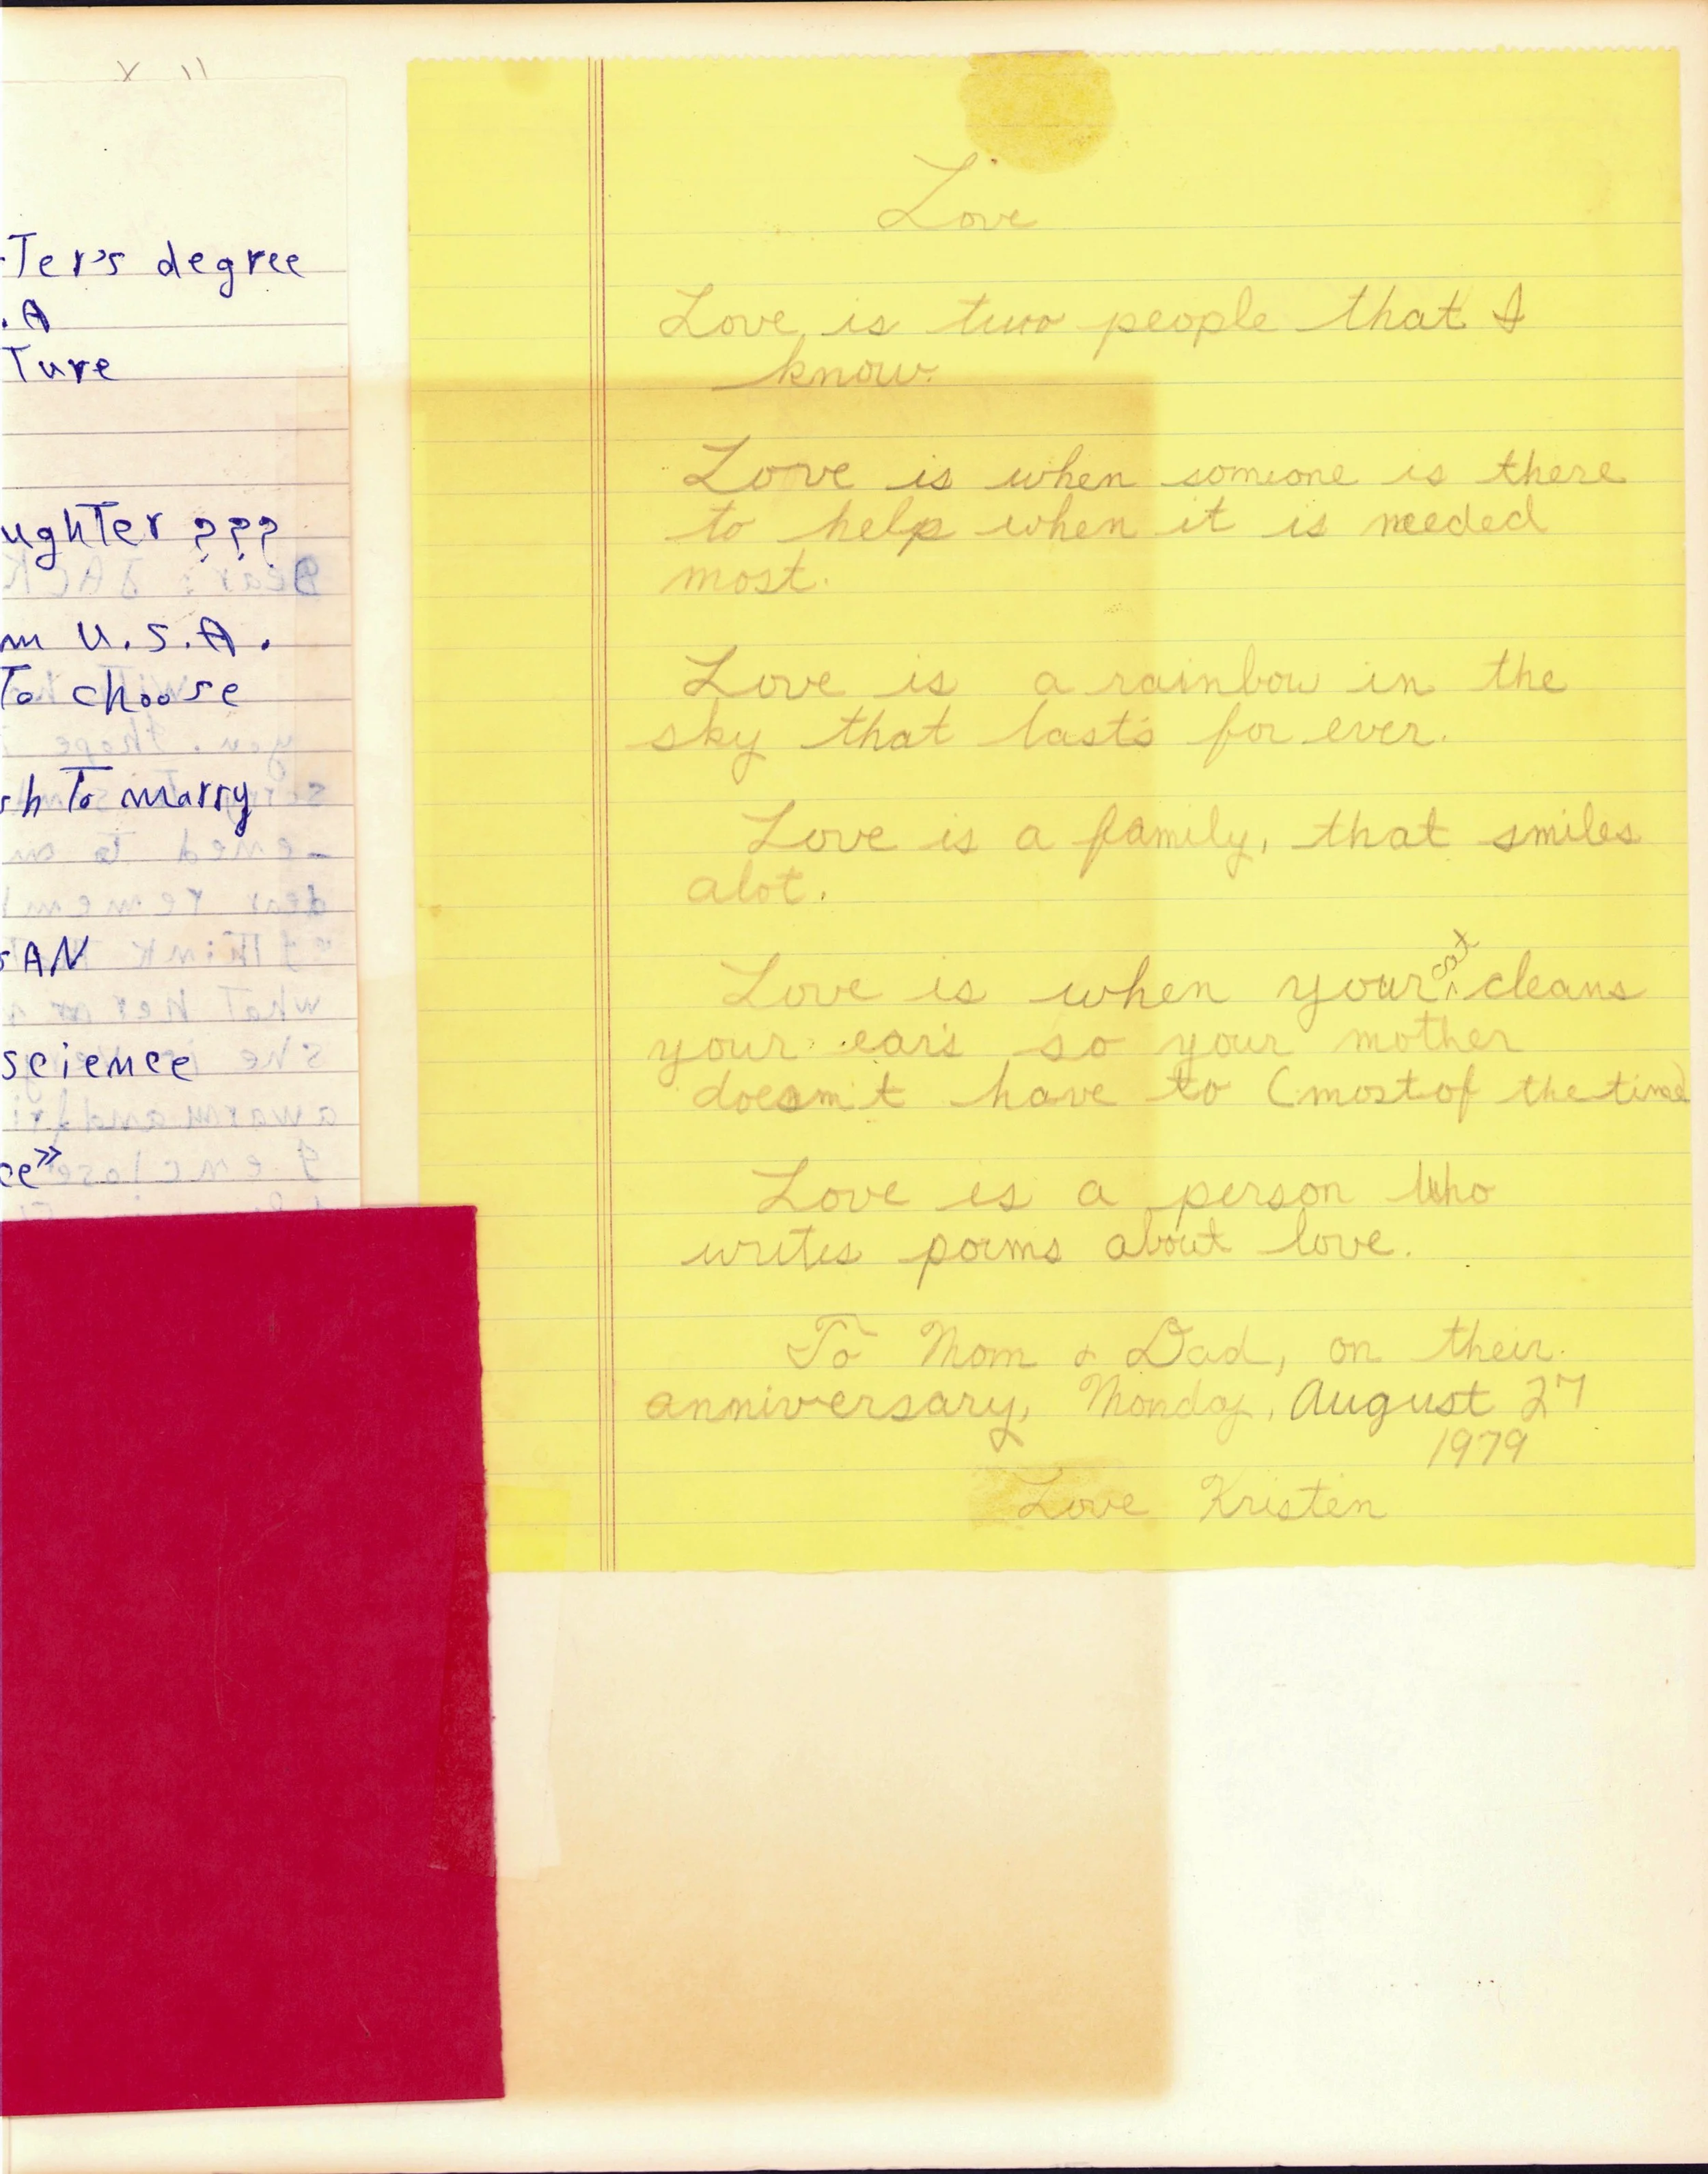 Ter's degree
.A
Ture
ughTer ???
m U.S.A.
To choose
h To marry
SAN
science
ce"
Love
Love is two people that I
know.
Love is when someone is there
to help when it is needed
most.
Love is a rainbow in the
sky that last's for ever.
Love is a family, that smiles
alot.
Love is when your cat cleans
your ear's so your mother
doesn't have to (most of the time)
Love is a person who
writes poems about love.
To Mom & Dad, on their
anniversary, Monday, August 27
1979
Love Kristen